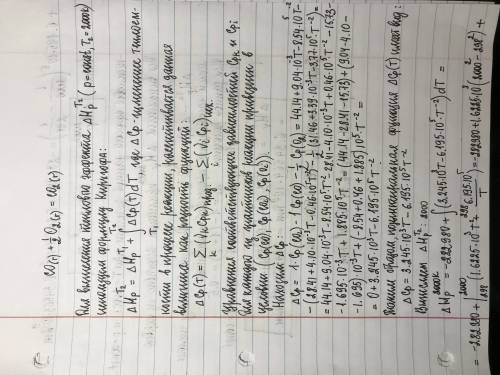 CO(г) + 1/2 O₂(г) = CO₂(г)
Для вычисления теплового эффекта ΔHp^T₂ (p=const, T₂=2000K)
используем формулу Кирхгофа:
ΔHp^T₂ = ΔHp^T₁ + ∫ΔCp(T)dT, где ΔCp - изменение теплоем-
T₁ T₂
кости в процессе реакции, рассчитывается данная
величина как разность функций:
ΔCp(T) = Σ(νk Cpk)прод - Σ(νi Cpi)исх.
k i
Уравнения соответствующих зависимостей Cpk и Cpi
для каждого из участников реакции приведены в
условии (Cp(CO), Cp(CO₂), Cp(O₂)).
Находим ΔCp:
ΔCp = 1·Cp(CO₂) - 1·Cp(CO) - 1/2 Cp(O₂) = 44.14+9.04·10⁻³T-8.54·10⁵T⁻²
-(28.41+4.10·10⁻³T-0.46·10⁵T⁻²) - 1/2(31.46+3.39·10⁻³T-3.77·10⁵T⁻²) =
= 44.14+9.04·10⁻³T-8.54·10⁵T⁻²-28.41-4.10·10⁻³T+0.46·10⁵T⁻²-15.73-
-1.695·10⁻³T+1.885·10⁵T⁻² = (44.14-28.41-15.73)+(9.04-4.10-
-1.695)·10⁻³T+(-8.54+0.46+1.885)·10⁵T⁻² =
= 0+3.245·10⁻³T-6.195·10⁵T⁻²
Таким образом подинтегральная функция ΔCp(T) имеет вид:
ΔCp = 3.245·10⁻³T-6.195·10⁵T⁻²
Вычисляем ΔHp^T₂:
ΔHp^2000K = -282980 + ∫(3.245·10⁻³T-6.195·10⁵T⁻²)dT =
2000 298
= -282980 + |(1.6225·10⁻³T² + 6.195·10⁵/T) = -282980 + 1.6225·10⁻³(2000²-298²) +
2000 298